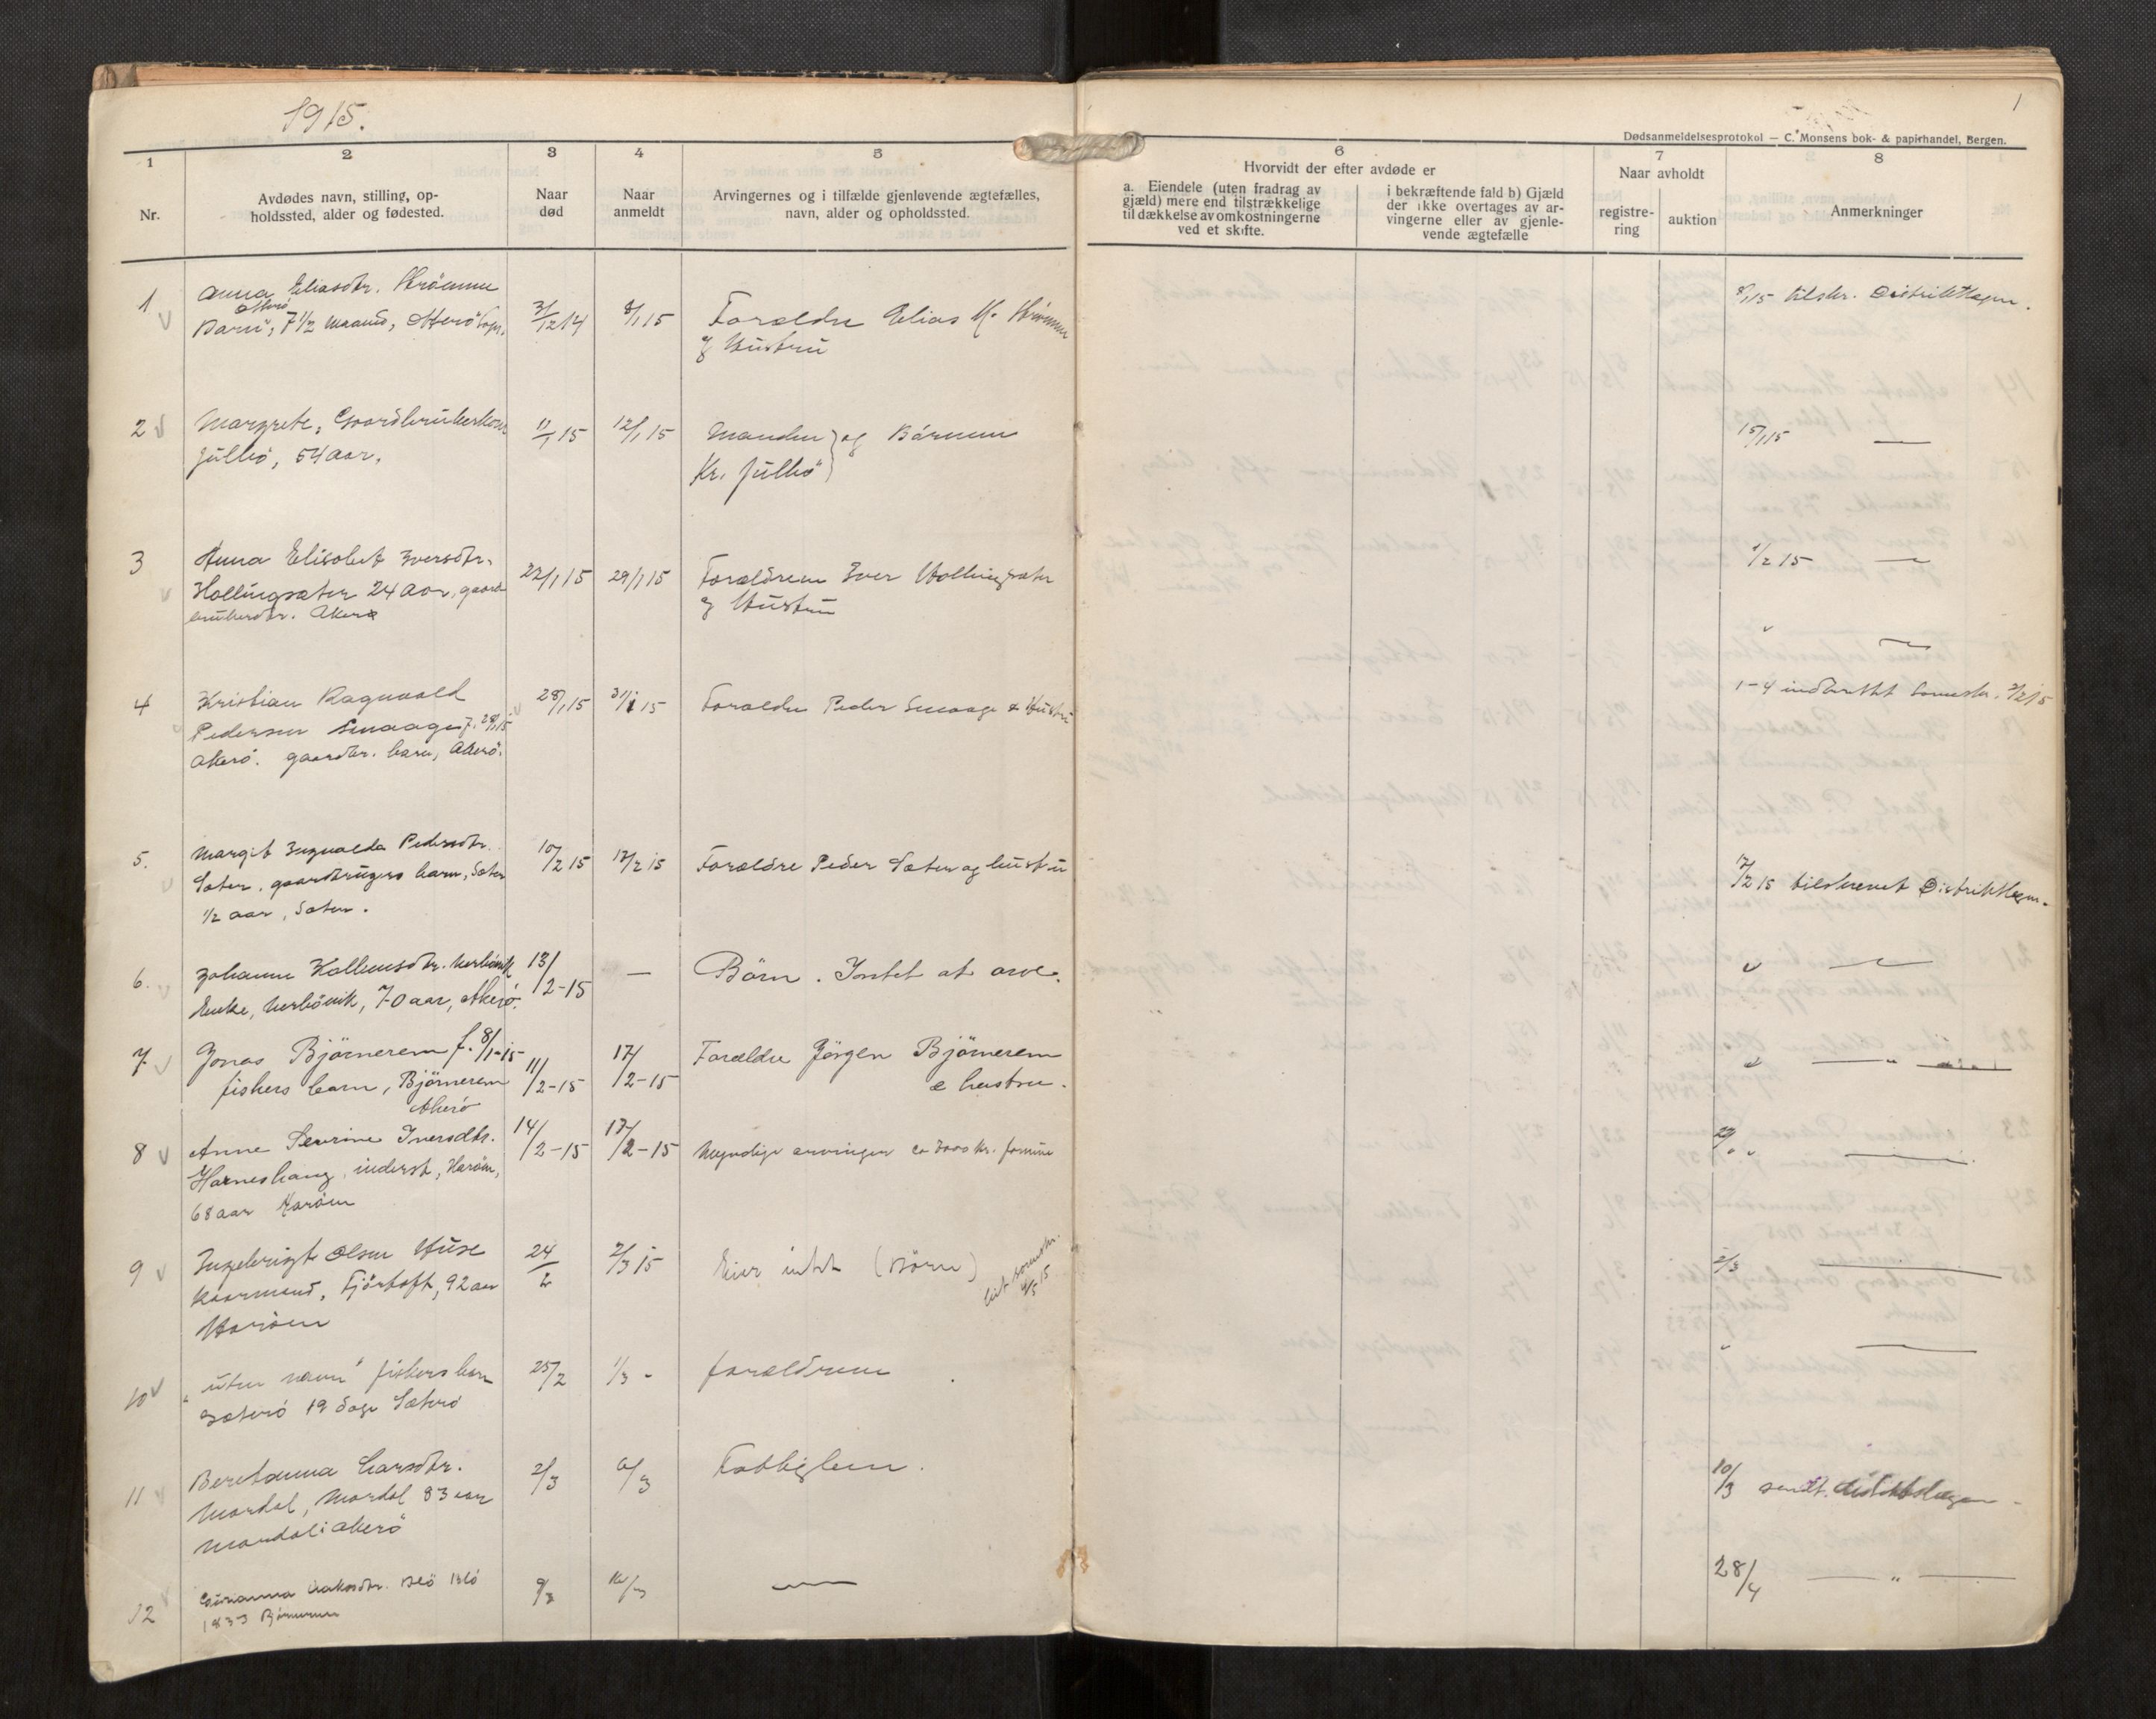 1915.
1
Dødsanmeldelsesprotokol — C. Monsens bok- & papirhandel, Bergen.
1
2
3
4
5
6
7
8
Nr.
Avdødes navn, stilling, op-
holdssted, alder og fødested.
Naar
død
Naar
anmeldt
Arvingernes og i tilfælde gjenlevende ægtefælles,
navn, alder og opholdssted.
Hvorvidt der efter avdøde er
a. Eiendele (uten fradrag av
gjæld) mere end tilstrækkelige
til dækkelse av omkostningerne
ved et skifte.
i bekræftende fald b) Gjæld
der ikke overtages av ar-
vingerne eller av gjenle-
vende ægtefælle
Naar avholdt
registre-
ring
auktion
Anmerkninger
1
Anna Eliasdtr.
Akerö
Barn, 7 1/2 Maaned,
3/12 14
8/1 15
Forældre Elias
og Hustru
8/1 15 tilskr. Distriktlægen.
2
Margrete, Gaardbrukerkone
Julbö, 54 aar.
11/1 15
12/1 15
Manden og Börnene
Kr. Julbö
15/1 15 —
3
Anna Elisabet Iversdtr.
Hollingsæter 24 aar, gaard
brukerdtr. Akerö
22/1 15
29/1 15
Forældrene Iver Hollingsæter
og Hustru
1/2 15 —
4
Kristian Ragnvald
Pedersen Smaage f. 28/1 15
Akerö. gaardbr. barn, Akerö.
28/1 15
31/1 15
Forældre Peder Smaage & Hustru
" —
1-4 indberettet 2/2 15
5.
Margit Ingvalda Pedersdtr.
Sæter, gaardbrugers barn, Sæter
1/2 aar, Sæter.
10/2 15
17/2 15
Forældre Peder Sæter og hustru
17/2 15 tilskrevet Distriktlægen.
6.
Enke, 70 aar, Akerö.
13/2-15
—
Börn. Intet at arve.
" —
7
Jonas Björnerem f. 8/1-15
fiskers barn, Björnerem
Akerö
11/2-15
17/2-15
Forældre Jörgen Björnerem
& hustru.
" — " —
8
Anne Sevrine Iversdtr.
Harneshaug, inderst, Haröen,
68 aar Haröen
14/2-15
17/2-15
Myndige arvinger ca 3000 Kr. formue
—
9
Ingebrigt Olsen Huse
Kaarmand, Fjörtoft, 92 aar
Haröen
24/2
2/3 15
Eier intet (Börn)
2/3 —
10
"uten navn" fiskers barn
Sæterö 19 dage Sæterö
25/2
1/3 -
forældrene
" —
11
Beretanna Larsdtr.
Mordal, Mordal 83 aar
Mordal i Akerö
2/3
6/3
Fattiglem.
10/3 sendt. distriktslægen
12
1833 Björnerem
9/3
—
28/4 — " —